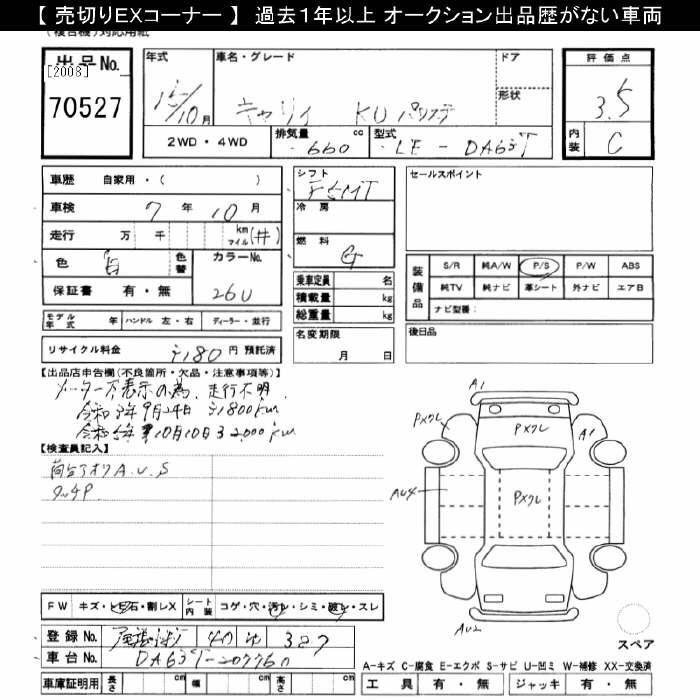 【 売切りEXコーナー 】 過去1年以上 オークション出品歴がない車両
出品No.
[2008]
70527
年式
15/10月
車名・グレード
キャリイ KU
ドア
形状
2WD・4WD
排気量 660 cc
型式 LE-DA63T
評価点
3.5
内装 C
車歴 自家用・( )
車検 7年10月
走行 万 千 km マイル (#)
色 白 色替 カラーNo. 26U
保証書 有・無
モデル年式 年 ハンドル 左・右 ディーラー・並行
リサイクル料金 円 預託済
シフト F5MT
冷房
燃料 G
乗車定員 名
積載量 kg
総重量 kg
名変期限
月 日
セールスポイント
装備品
S/R 純A/W P/S P/W ABS
純TV 純ナビ 革シート 外ナビ エアB
ナビ型番:
後日品
【出品店申告欄(不良箇所・欠品・注意事項等)】
メーター不表示の為、走行不明
【検査員記入】
荷台アオリA.U.S
タッチP
A1
Pxクレ
PxクレA1
AU4
Pxクレ
AU2
スペア
FW キズ・ヒビ・石・割レX シート内装 コゲ・穴・汚レ・シミ・破レ・スレ
登録No. 40 327
車台No. DA63T-207760
車庫証明用 長さ cm 幅 cm 高さ cm
A-キズ C-腐食 E-エクボ S-サビ U-凹ミ W-補修 XX-交換済
工具 有・無 ジャッキ 有・無